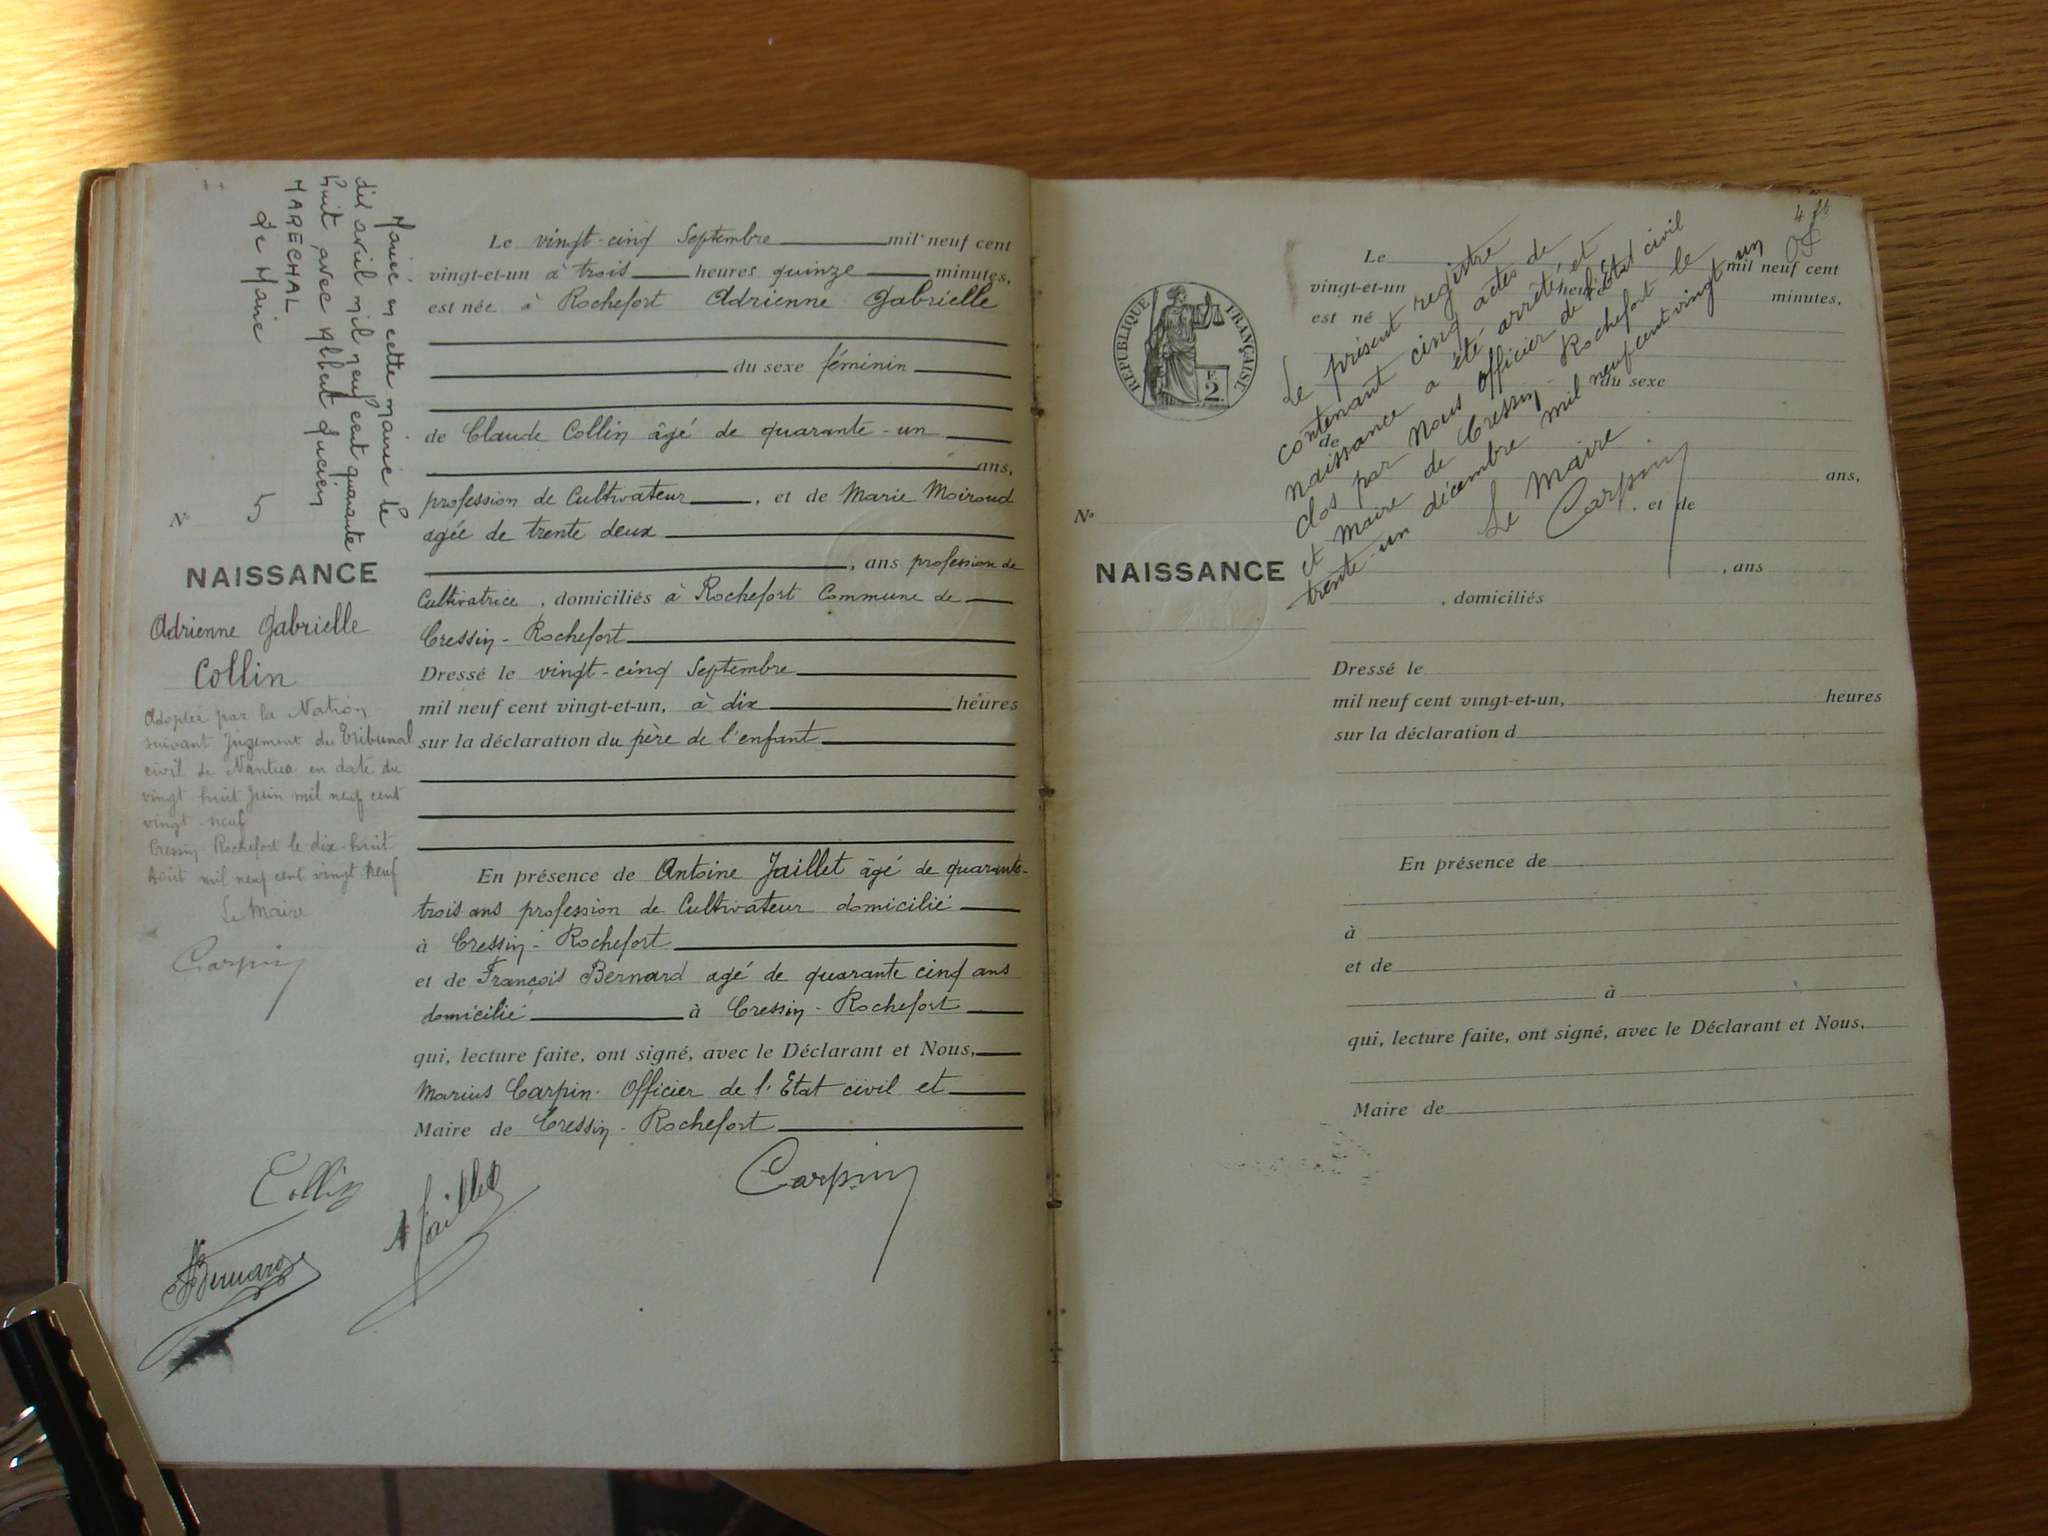 Mariée en cette mairie le
dix avril mil neuf cent quarante
huit avec Albert Lucien
MARECHAL
Le Maire
N° 5
NAISSANCE
Adrienne Gabrielle
Collin
Adoptée par la Nation
suivant jugement du Tribunal
civil de Nantua en date du
vingt huit juin mil neuf cent
vingt neuf
Cressin Rochefort le dix-huit
Août mil neuf cent vingt neuf
Le Maire
Carpin
Le vingt-cinq Septembre mil neuf cent
vingt-et-un à trois heures quinze minutes,
est née à Rochefort Adrienne Gabrielle
du sexe féminin
de Claude Collin âgé de quarante-un
ans,
profession de Cultivateur, et de Marie Moiroud
agée de trente deux
, ans profession de
Cultivatrice, domiciliés à Rochefort Commune de
Cressin-Rochefort
Dressé le vingt-cinq Septembre
mil neuf cent vingt-et-un, à dix heures
sur la déclaration du père de l'enfant
En présence de Antoine Jaillet âgé de quarante-
trois ans profession de Cultivateur domicilié
à Cressin-Rochefort
et de François Bernard agé de quarante cinq ans
domicilié à Cressin-Rochefort
qui, lecture faite, ont signé, avec le Déclarant et Nous,
Marius Carpin. Officier de l'Etat civil et
Maire de Cressin-Rochefort
Collin
A Jaillet
Carpin
Bernard
RÉPUBLIQUE FRANÇAISE
2
N°
NAISSANCE
Le mil neuf cent
vingt-et-un heures minutes,
est né
du sexe
de
ans,
, et de
, ans
, domiciliés
Dressé le
mil neuf cent vingt-et-un, heures
sur la déclaration d
En présence de
à
et de
à
qui, lecture faite, ont signé, avec le Déclarant et Nous,
Maire de
Le présent registre
contenant cinq actes de
naissance a été arrêté et
clos par Nous Officier de l'Etat civil
et Maire de Cressin-Rochefort le
trente-un décembre mil neuf cent vingt un
Le Maire
Carpin